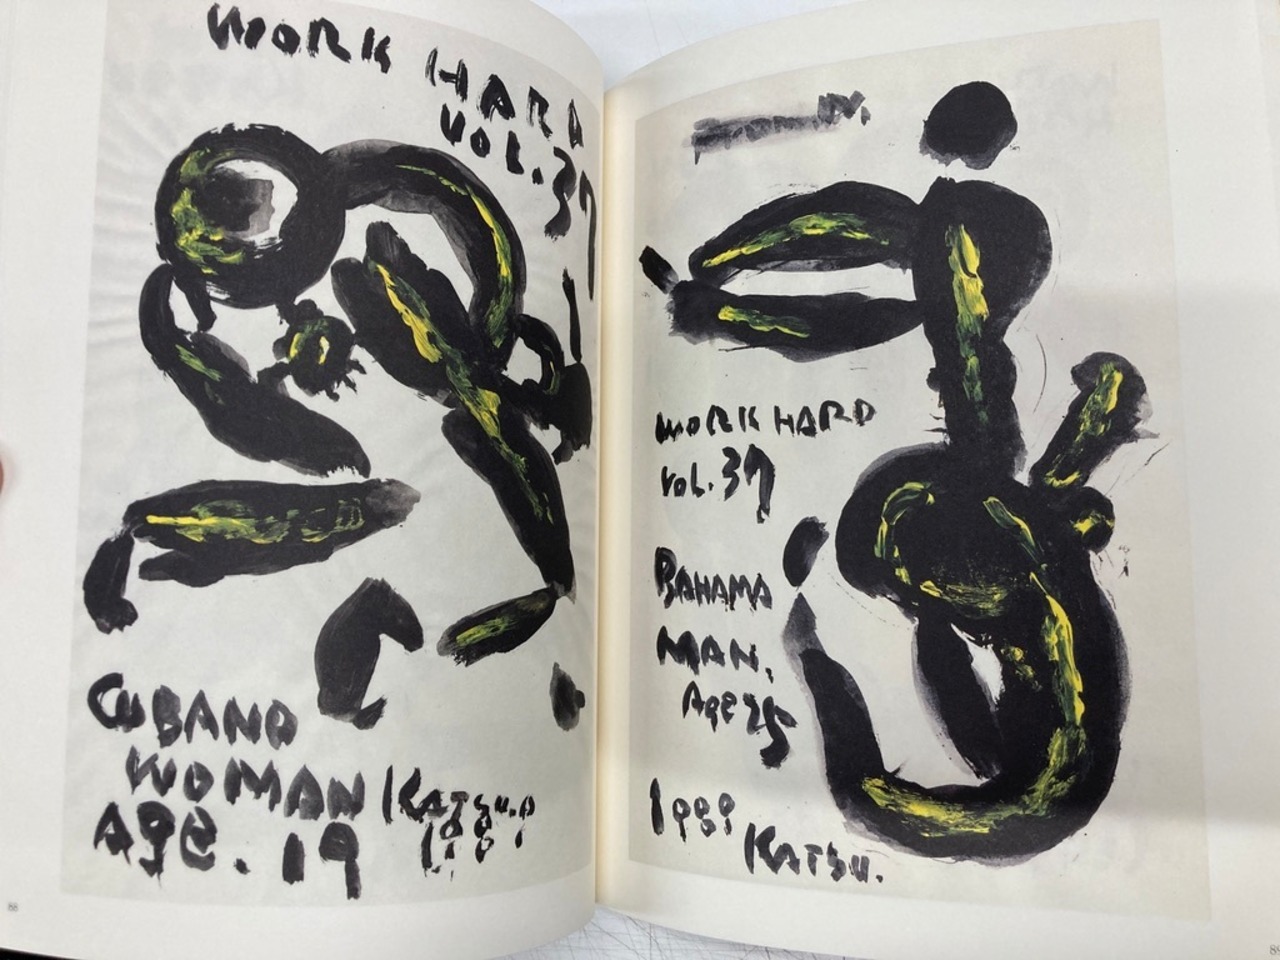 WORK HARD
VOL.37
CUBANO
WOMAN
Age.19
KATSU.
88
WORK HARD
Vol.37
BAHAMA
MAN.
Age 25
1989
KATSU.